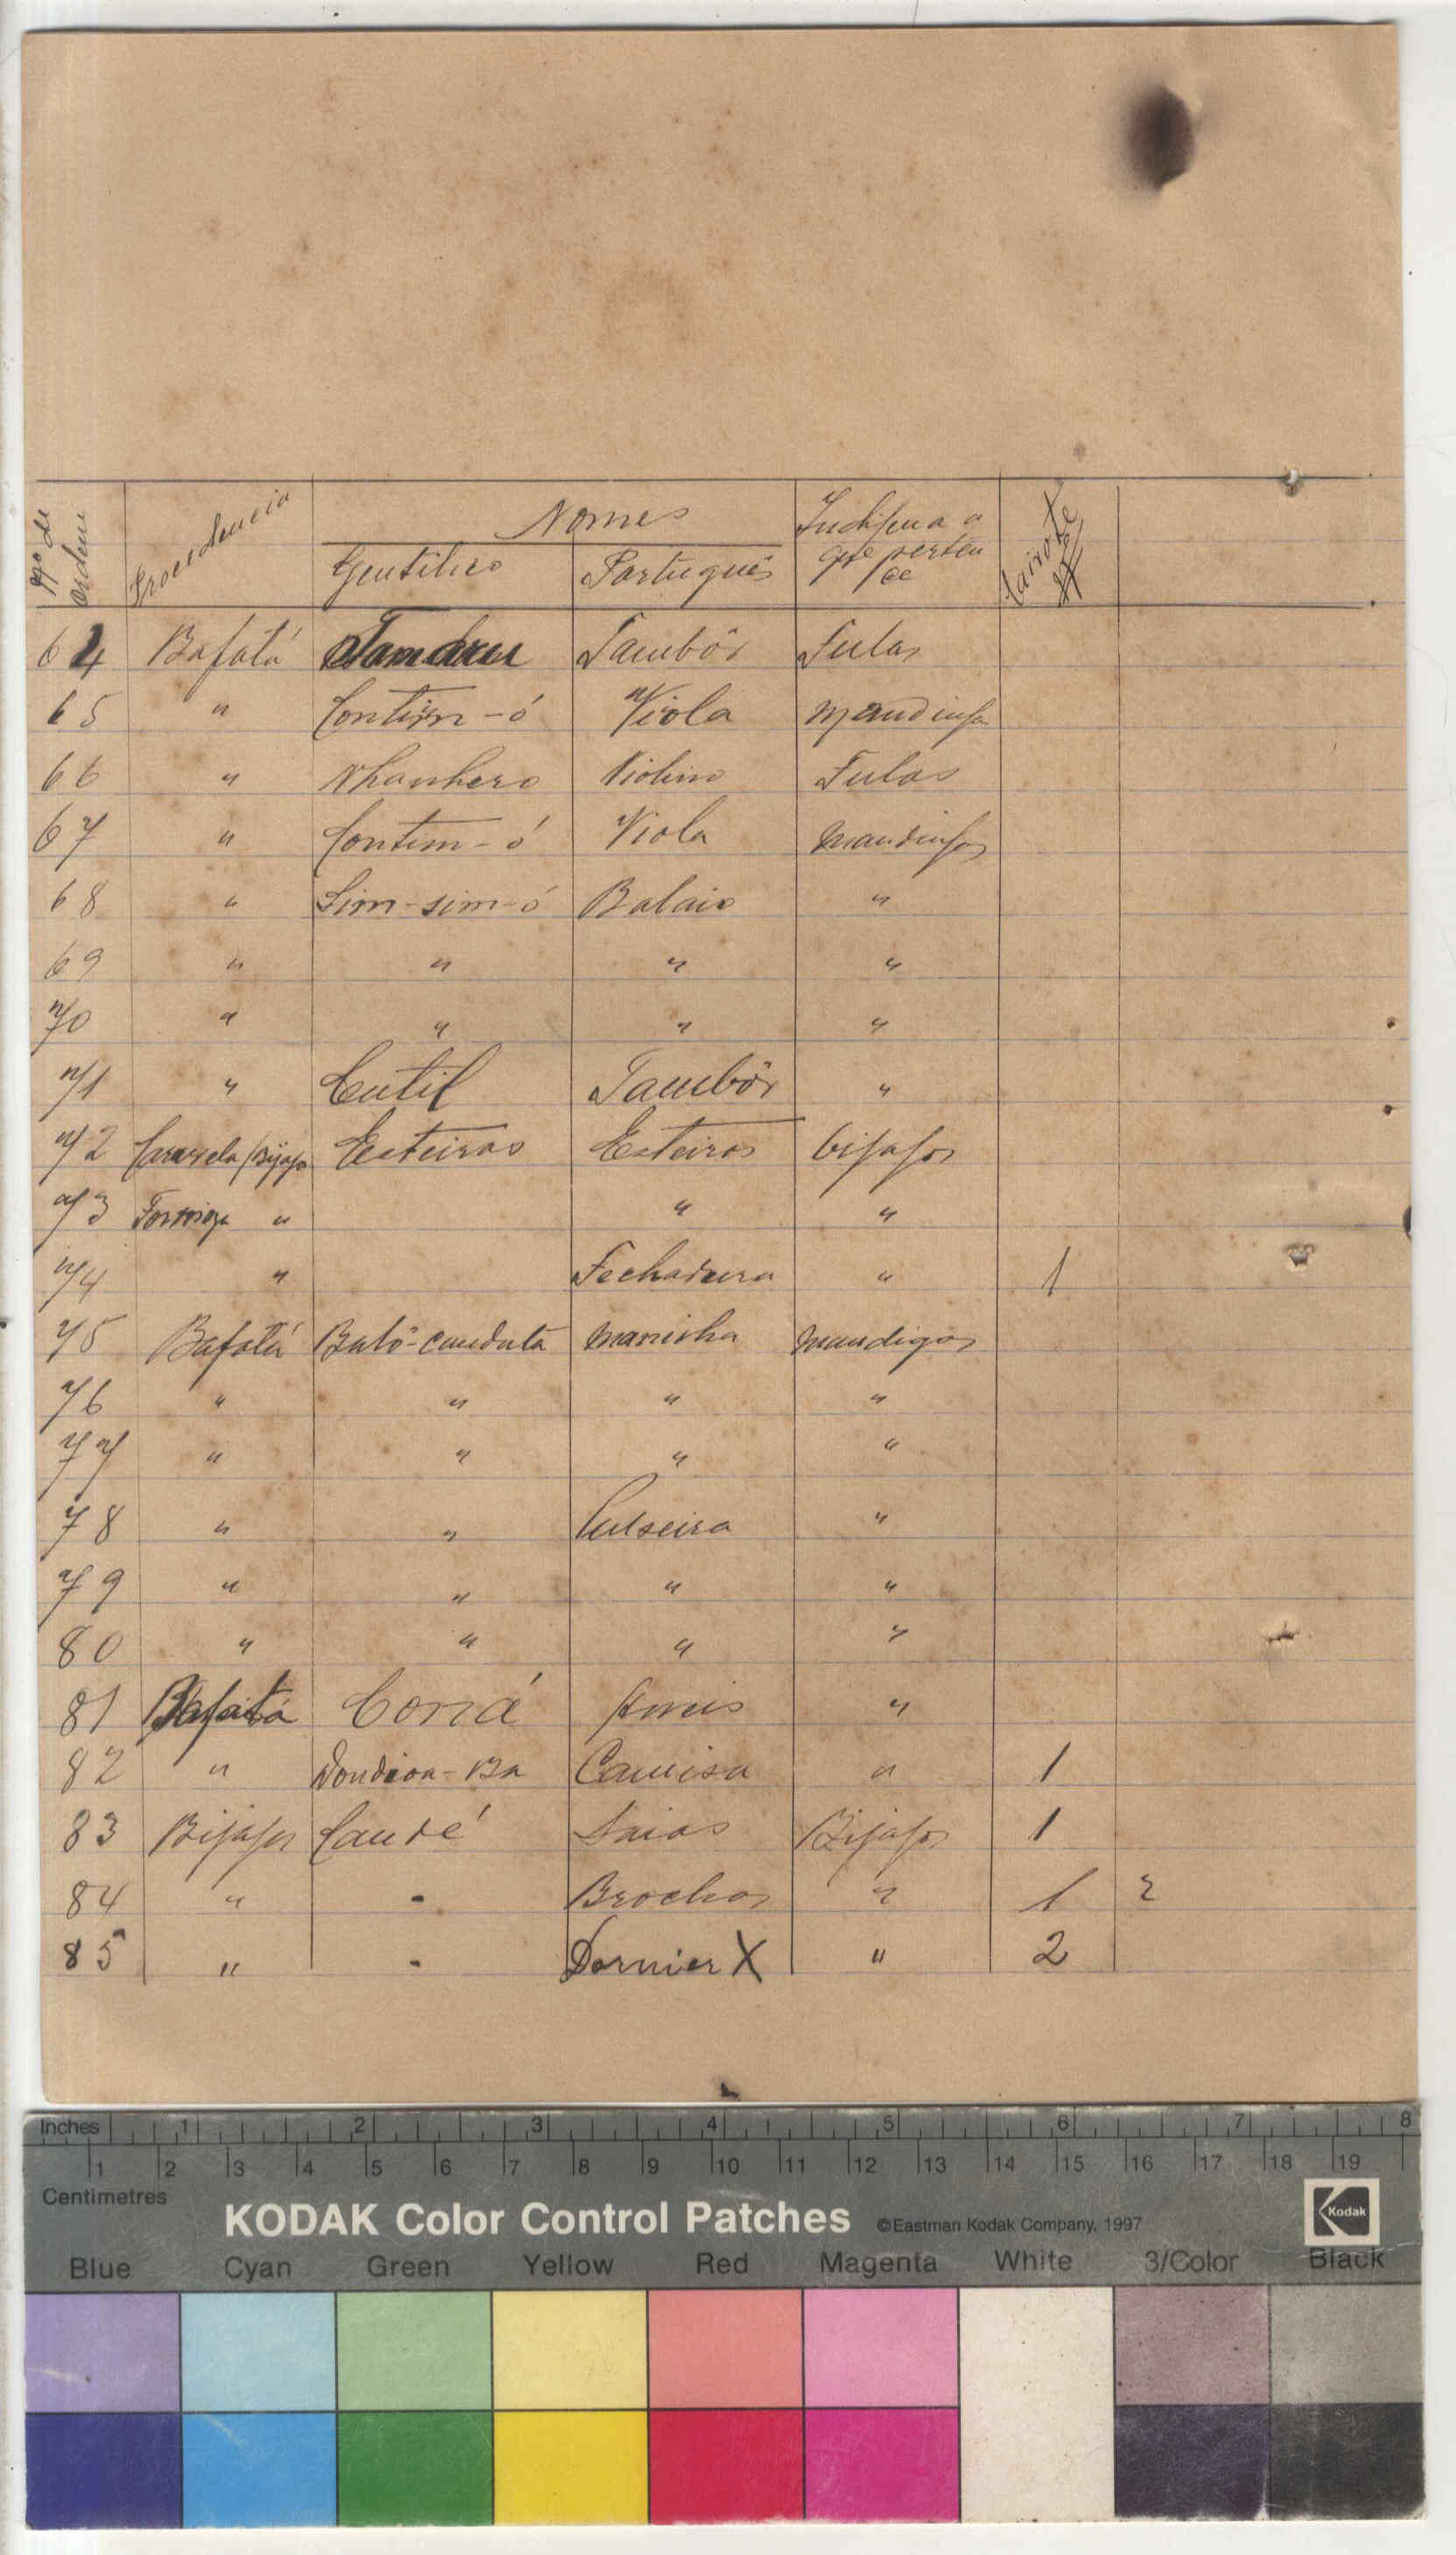 Nº de ordem Procedencia Nomes Indigena a que perten ce
Gentilico Português
64 Bafatá Tambôr Fulas
65 " Contim-ó Viola Mandinga
66 " Nhanhero Violino Fulas
67 " Contim-ó Viola Mandingas
68 " Sim-sim-ó Balaio "
69 " " " "
70 " " " "
71 " Cutil Tambôr "
72 Caravela/Bijagós Esteiras Esteiras bijagos
73 Formosa " " "
74 " Fechadura " 1
75 Bafatá Buló-canduta Manilha Mandigas
76 " " " "
77 " " " "
78 " " Pulseira "
79 " " " "
80 " " " "
81 Bafatá Coná Aneis "
82 " Dondion-Ba Camisa " 1
83 Bijagos Candé Saias Bijagos 1
84 " - Brochas " 1 2
85 " - Dornier X " 2
Inches 1 2 3 4 5 6 7 8
1 2 3 4 5 6 7 8 9 10 11 12 13 14 15 16 17 18 19
Centimetres
KODAK Color Control Patches ©Eastman Kodak Company, 1997 Kodak
Blue Cyan Green Yellow Red Magenta White 3/Color Black